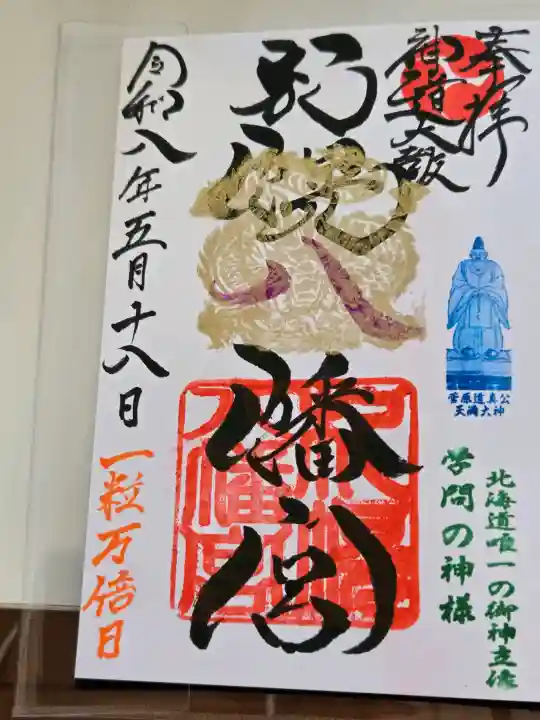 奉拝
神道大教
別海八幡宮
八幡宮
菅原道真公
天満大神
北海道唯一の御神立像
学問の神様
令和八年五月十八日
一粒万倍日